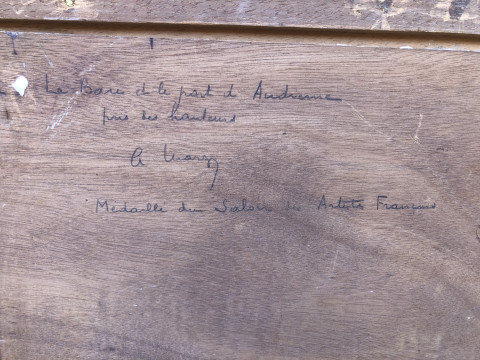 La Baie et le port d' Audierne
pris des hauteurs
Médaillé du Salon des Artistes Français